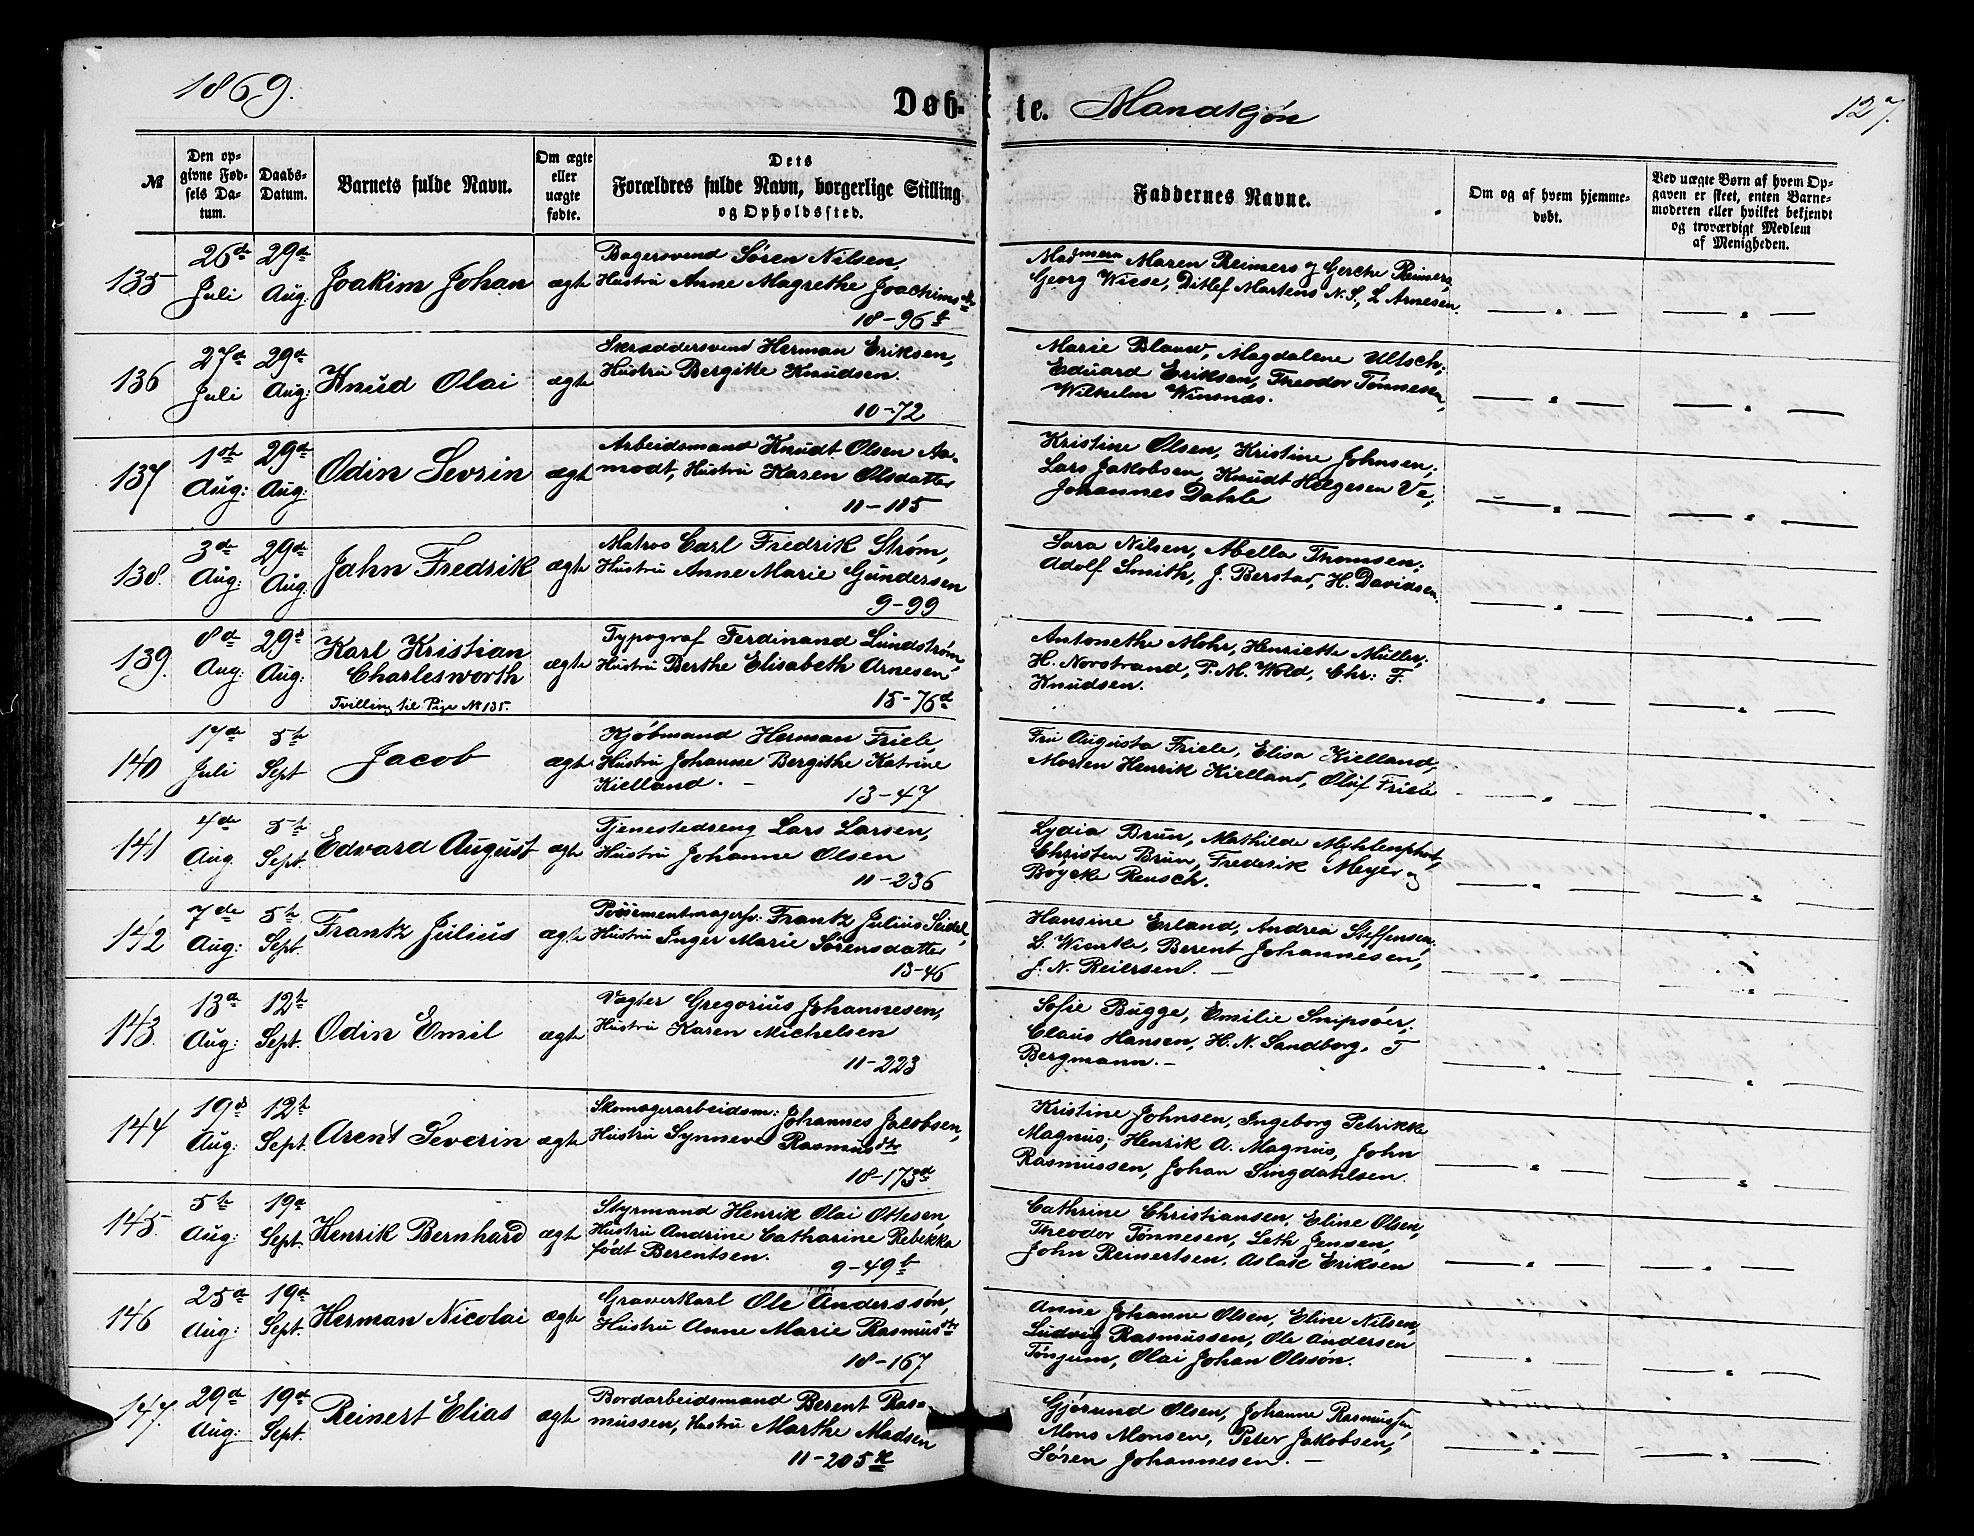 1869.
Døb-
te. Mandkjøn
127.
№
Den op-
givne Fød-
sels Da-
tum.
Daabs-
Datum.
Barnets fulde Navn.
Om ægte
eller
uægte
fødte.
Dets
Forældres fulde Navn, borgerlige Stilling
og Opholdssted.
Faddernes Navne.
Om og af hvem hjemme-
døbt.
Ved uægte Børn af hvem Op-
gaven er skeet, enten Barne-
moderen eller hvilket bekjendt
og troværdigt Medlem
af Menigheden.
135
26de
Juli
29de
Aug:
Joakim Johan
ægte
Bagersvend Søren Nilsen,
Hustru Anne Magrethe Joachimsdr
18-96b
Madmerm Maren Reimers og Gerche Reimers,
Georg Wiese, Ditlef Martens N.S., L. Arnesen.
— " —
— " —
136
27de
Juli
29de
Aug:
Knud Olai
ægte
Skræddersvend Herman Eriksen,
Hustru Bergitte Knudsen.
10-72
Marie Blauw, Magdalene Ultsch;
Eduard Eriksen, Theodor Tønnesen,
Wilhelm Winsnæs.
— " —
— " —
137
1st
Aug:
29de
Aug:
Odin Sevrin
ægte
Arbeidsmand Knudt Olsen Aa-
modt, Hustru Karen Olsdatter
11-115
Kristine Olsen, Kristine Johnsen;
Lars Jakobsen, Knudt Helgesen Ve;
Johannes Dahle
— " —
— " —
138.
3de
Aug:
29de
Aug:
John Fredrik
ægte
Matros Carl Fredrik Strøm,
Hustru Anne Marie Gundersen
9-99
Sara Nilsen, Abella Thomsen;
Adolf Smith, J. Berstad, H. Davidsen.
— " —
— " —
139.
8de
Aug:
29de
Aug:
Karl Kristian
Charlesworth
Tvilling til Pige № 135.
ægte
Typograf Ferdinand Lundstrøm,
Hustru Berthe Elisabeth Arnesen
15-76d
Antonethe Mohr, Henriette Müller;
H. Norstrand, P. M. Wold, Chr: F.
Knudsen.
— " —
— " —
140
17de
Juli
5te
Sept
Jacob
ægte
Kjøbmand Herman Friele,
Hustru Johanne Bergithe Katrine
Kielland. —
13-47
Fru Augusta Friele, Elisa Kielland,
Morten Henrik Kielland, Oluf Friele
— " —
— " —
141
4de
Aug.
5te
Sept.
Edvard August
ægte
Tjenestedreng Lars Larsen,
Hustru Johanne Olsen
11-236
Lydia Brun, Mathilde Mehlenphort,
Christen Brun, Frederik Meyer og
Boycke Rensch.
— " —
— " —
142
7de
Aug:
5te
Sept.
Frantz Julius
ægte
Possementmagersv: Frantz Julius Seidel,
Hustru Inger Marie Sørensdatter
13-46
Hansine Erland, Andrea Steffensen;
L. Wiemke, Berent Johannesen,
J. N. Reiersen. —
— " —
— " —
143.
13de
Aug:
12te
Sept.
Odin Emil
ægte
Vægter Gregorius Johannesen,
Hustru Karen Michelsen
11-223
Sofie Bugge, Emilie Snipsøer;
Claus Hansen, H. N. Sandborg, T
Bergmann. —
— " —
— " —
144
19de
Aug:
12te
Sept.
Arent Severin
ægte
Skomagerarbeidsm: Johannes Jacobsen,
Hustru Synneve Rasmusdtr
18-173d
Kristine Johnsen, Ingeborg Petrikke
Magnus; Henrik A. Magnus, John
Rasmussen, Johan Singdahlsen.
— " —
— " —
145.
5te
Aug:
19de
Sept.
Henrik Bernhard
ægte
Styrmand Henrik Olai Ottesen,
Hustru Andrine Catharine Rebekka
født Berentsen.
9-49b
Cathrine Christiansen, Eline Olsen,
Theodor Tønnesen, Leth Jensen,
John Reinertsen, Aslak Eriksen
— " —
— " —
146
25de
Aug:
19de
Sept.
Herman Nicolai
ægte
Graverkarl Ole Anderssøn,
Hustru Anne Marie Rasmusdtr
18-167
Anne Johanne Olsen, Eline Nilsen,
Ludvig Rasmussen, Ole Andersen
Tønjum, Olai Johan Olssøn.
— " —
— " —
147.
29de
Aug:
19de
Sept.
Reinert Elias
ægte
Bordarbeidsmand Berent Ras-
mussen, Hustru Marthe Madsen
11-205k
Gjørund Olsen, Johanne Rasmussen,
Mons Monsen, Peter Jakobsen,
Søren Johannesen. —
— " —
— " —